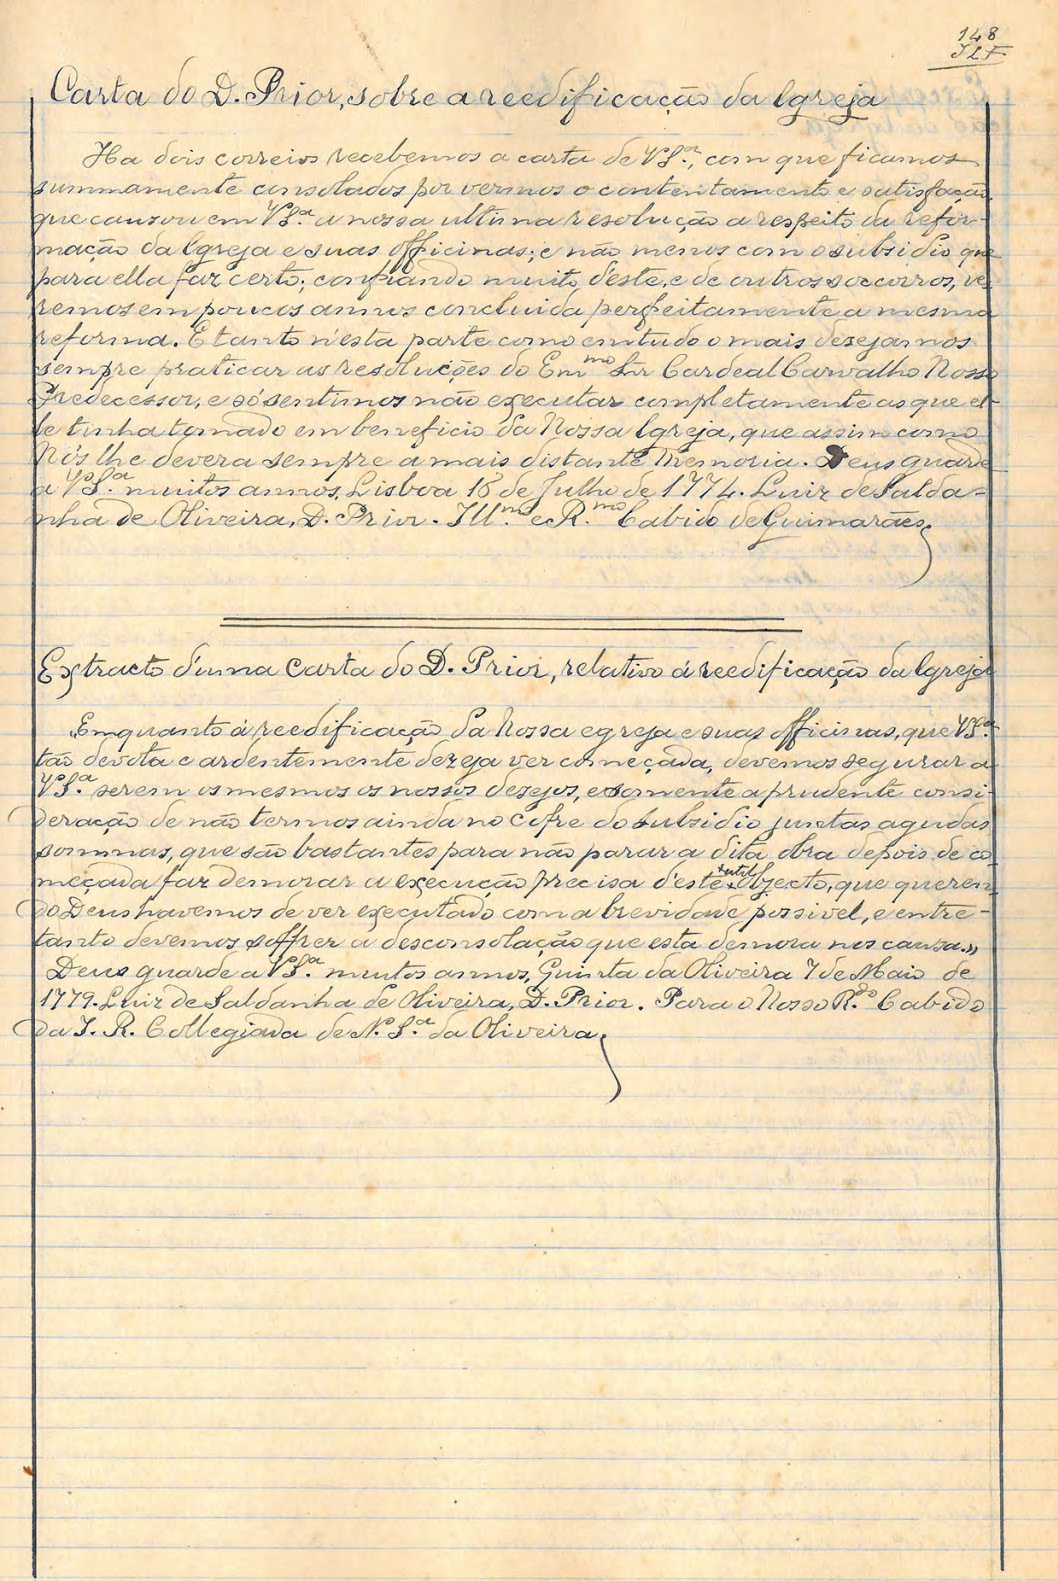 148
JLF
Carta do D. Prior, sobre a reedificação da Igreja
Ha dois correios recebemos a carta de VS.ª, com que ficamos
summamente consolados por vermos o contentamento e satisfação
que causou em VS.ª a nossa ultima resolução a respeito da refor-
mação da Igreja e suas officinas; e não menos com o subsidio que
para ella faz certo; confiando muito d'este, e de outros soccorros, ve-
remos em poucos annos concluida perfeitamente a mesma
reforma. E tanto n'esta parte como em tudo o mais dezejamos
sempre praticar as resoluções do Em.mo Snr Cardeal Carvalho Nosso
Predecessor, e só sentimos não executar completamente as que el-
le tinha tomado em beneficio da Nossa Igreja, que assim como
Nós lhe devera sempre a mais distante memoria. Deus guarde
a VS.ª muitos annos, Lisboa 16 de Julho de 1774. Luiz de Salda=
nha de Oliveira, D. Prior. Ill.mo e R.mo Cabido de Guimarães
Extracto d'uma Carta do D. Prior, relativo á reedificação da Igreja
„Emquanto á reedificação da Nossa egreja e suas officinas, que VS.ª
tão devota e ardentemente dezeja ver começada, devemos segurar a
VS.ª serem os mesmos os nossos dezejos, e somente a prudente consi-
deração de não termos ainda no Cofre do Subsidio juntas aquellas
sommas, que são bastantes para não parar a dita obra depois de co-
meçada faz demorar a execução precisa d'este +util+ objecto, que queren-
do Deus havemos de ver executado com a brevidade possivel, e entre-
tanto devemos soffrer a desconsolação que esta demora nos causa.„
Deus guarde a VS.ª muitos annos, Quinta da Oliveira 7 de Maio de
1779. Luiz de Saldanha de Oliveira, D. Prior. Para o Nosso R.do Cabido
da I. R. Collegiada de N. S.ª da Oliveira